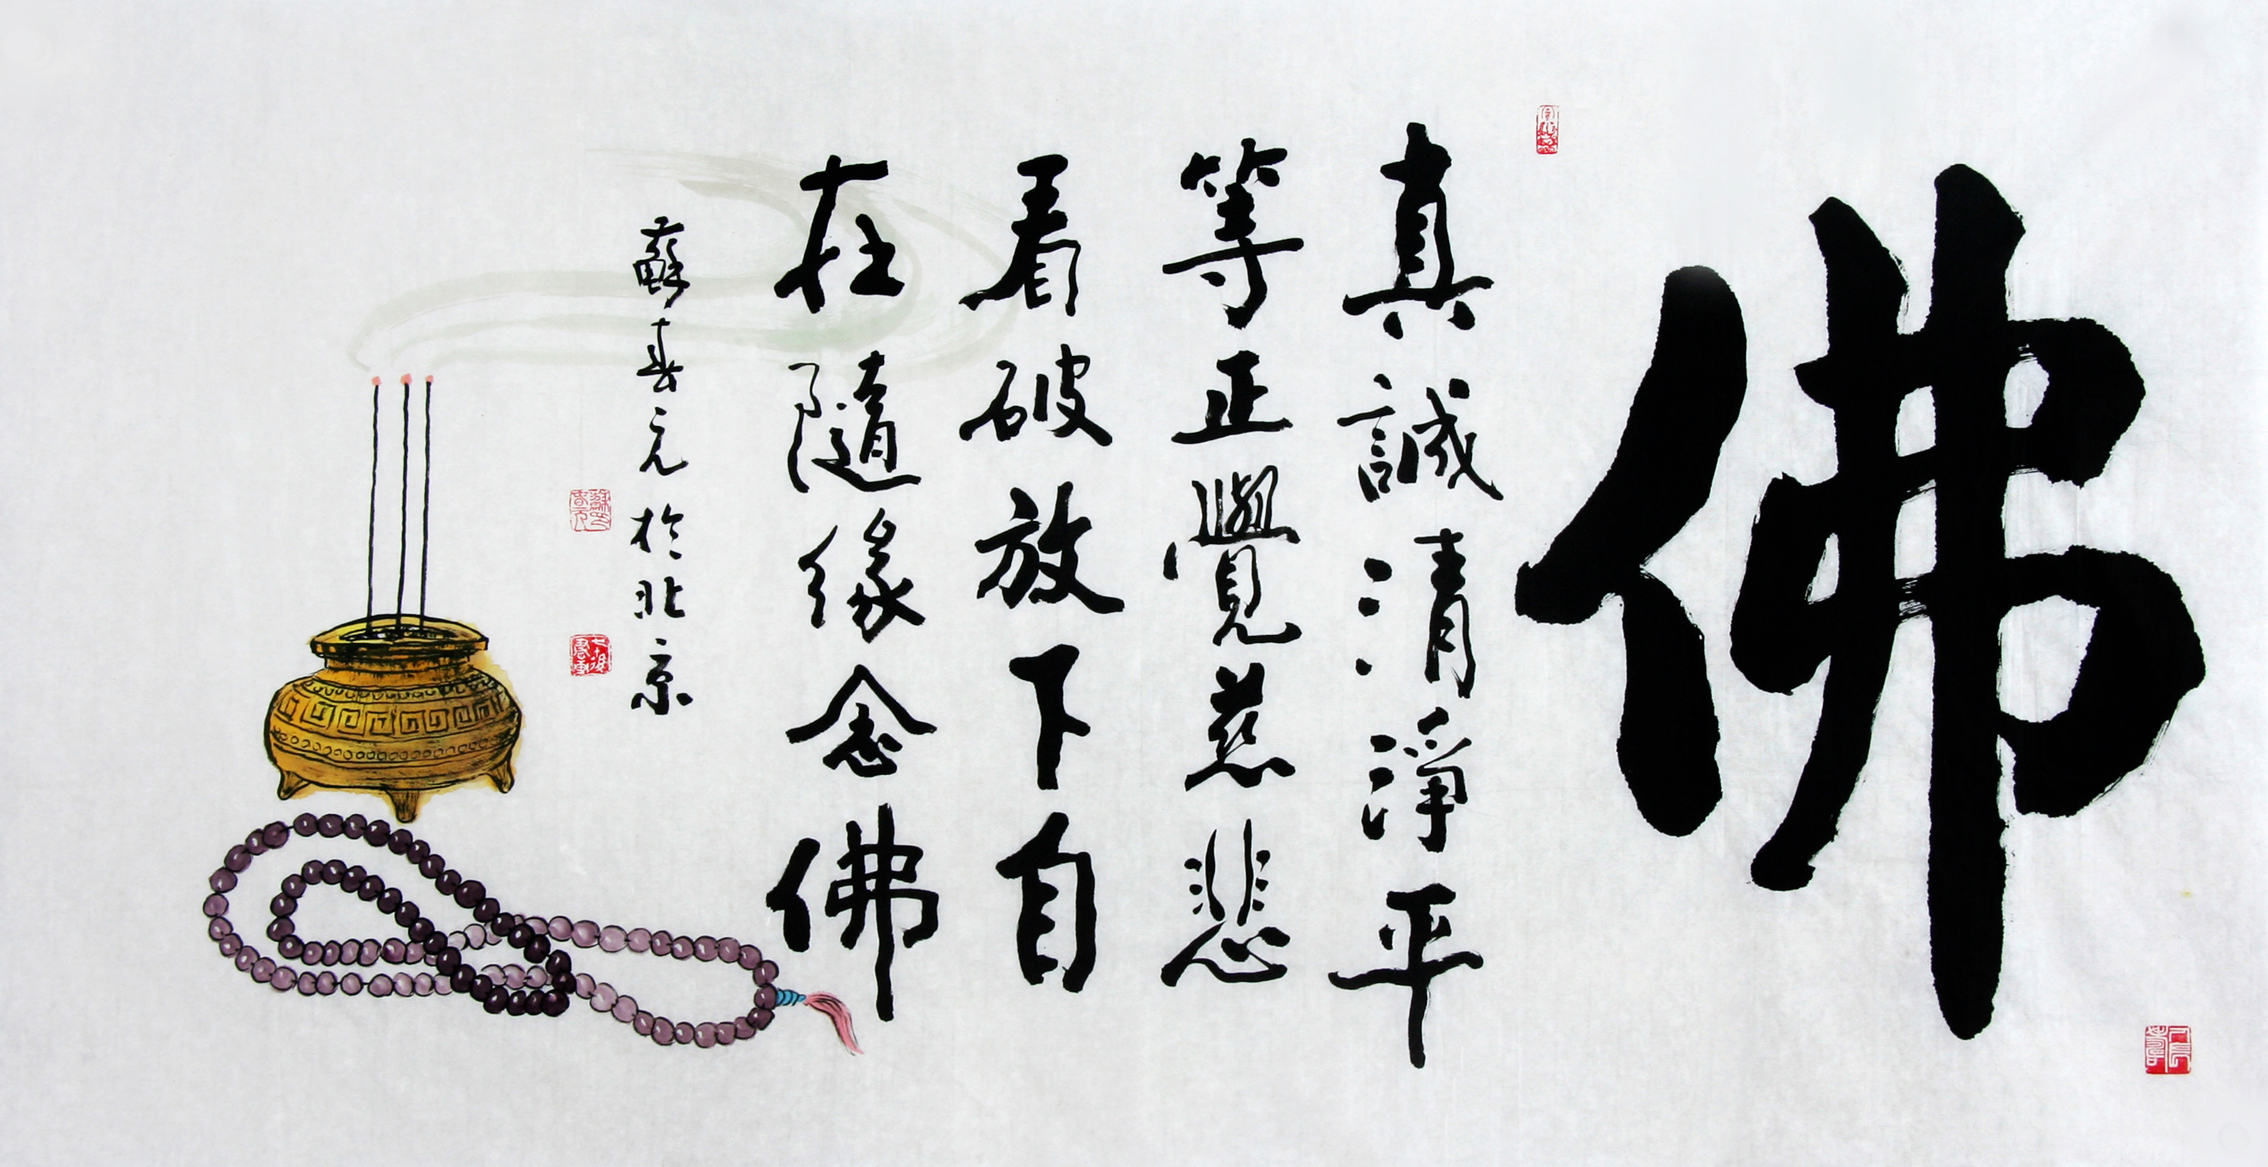 佛
真誠清淨平
等正覺慈悲
看破放下自
在隨緣念佛
蘇春元於北京